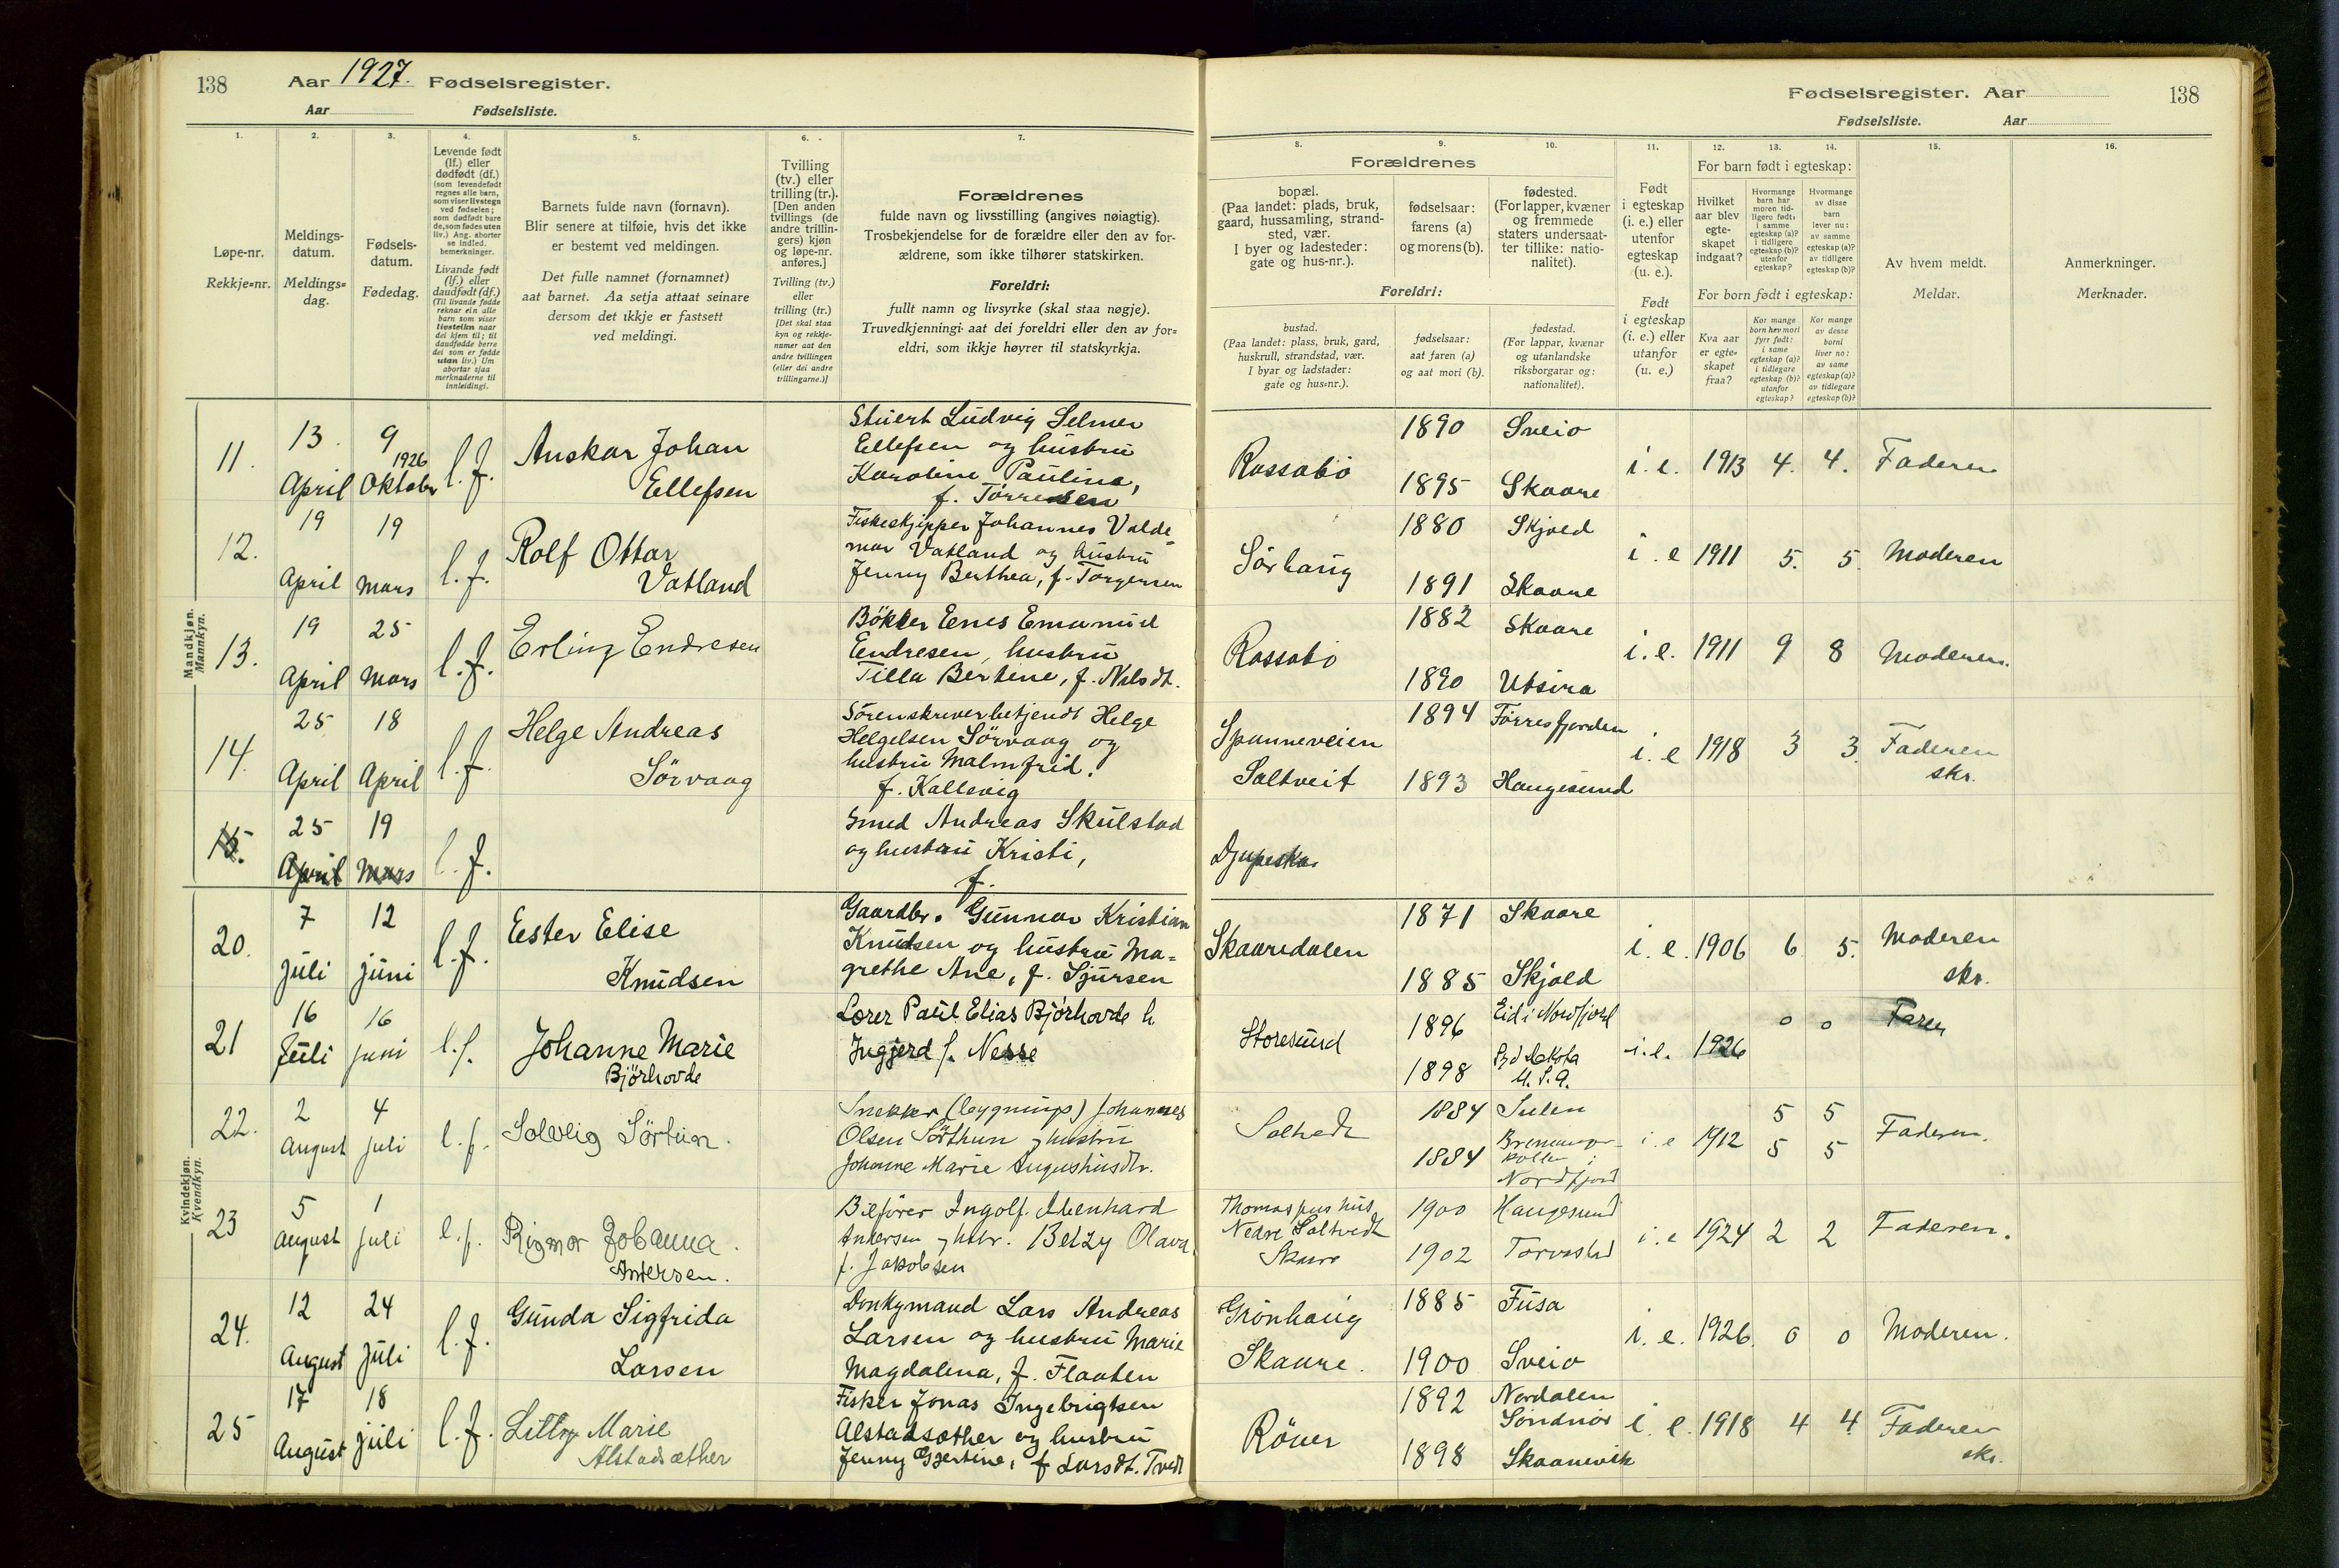 138
Aar 1927. Fødselsregister.
Aar Fødselsliste.
Fødselsregister. Aar
138
Fødselsliste. Aar
1.
2.
3.
4.
5.
6.
7.
8.
9.
10.
11.
12.
13.
14.
15.
16.
Løpe-nr.
Rekkje=nr.
Meldings-
datum.
Meldings=
dag.
Fødsels-
datum.
Fødedag.
Levende født
(lf.) eller
dødfødt (df.)
(som levendefødt
regnes alle barn,
som viser livstegn
ved fødselen;
som dødfødt bare
de, som fødes uten
liv.) Ang. aborter
se indled.
bemerkninger.
Livande født
(lf.) eller
daudfødt (df.)
(Til livande fødde
reknar ein alle
barn som viser
livsteikn naar
dei kjem til; til
daudfødde berre
dei som er fødde
utan liv.) Um
abortar sjaa
merknaderne til
innleidingi.
Barnets fulde navn (fornavn).
Blir senere at tilføie, hvis det ikke
er bestemt ved meldingen.
Det fulle namnet (fornamnet)
aat barnet. Aa setja attaat seinare
dersom det ikkje er fastsett
ved meldingi.
Tvilling
(tv.) eller
trilling (tr.).
[Den anden
tvillings (de
andre trillin-
gers) kjøn
og løpe-nr.
anføres.]
Tvilling (tv.)
eller
trilling (tr.)
[Det skal staa
kyn og rekkje-
numer aat den
andre tvillingen
(eller dei andre
trillingarne.)]
Forældrenes
fulde navn og livsstilling (angives nøiagtig).
Trosbekjendelse for de forældre eller den av for-
ældrene, som ikke tilhører statskirken.
Foreldri:
fullt namn og livsyrke (skal staa nøgje).
Truvedkjenningi aat dei foreldri eller den av for=
eldri, som ikkje høyrer til statskyrkja.
Forældrenes
bopæl.
(Paa landet: plads, bruk,
gaard, hussamling, strand-
sted, vær.
I byer og ladesteder:
gate og hus-nr.).
fødselsaar:
farens (a)
og morens (b).
fødested.
(For lapper, kvæner
og fremmede
staters undersaat-
ter tillike: natio-
nalitet).
Foreldri:
bustad.
(Paa landet: plass, bruk, gard,
huskrull, strandstad, vær.
I byar og ladstader:
gate og hus=nr.).
fødselsaar:
aat faren (a)
og aat mori (b).
fødestad.
(For lappar, kvænar
og utanlandske
riksborgarar og:
nationalitet).
Født
i egteskap
(i. e.) eller
utenfor
egteskap
(u. e.).
Født
i egteskap
(i. e.) eller
utanfor
(u. e.)
For barn født i egteskap:
Hvilket
aar blev
egte-
skapet
indgaat?
Hvormange
barn har
moren tid-
ligere født:
i samme
egteskap (a)?
i tidligere
egteskap (b)?
utenfor
egteskap?
Hvormange
av disse
barn
lever nu:
av samme
egteskap (a)?
av tidligere
egteskap (b)?
For born født i egteskap:
Kva aar
er egte=
skapet
fraa?
Kor mange
born hev mori
fyrr født:
i same
egteskap (a)?
i tidlegare
egteskap (b)?
utanfor
egteskap?
Kor mange
av desse
borni
liver no:
av same
egteskap (a)?
av tidlegare
egteskap (b)?
Av hvem meldt.
Meldar.
Anmerkninger.
Merknader.
Mandkjøn.
Mannkyn.
11. 13. April 9 1926 Oktober l.f.
Anskar Johan
Ellefsen
Stuert Ludvig Selmer
Ellefsen og hustru
Karoline Paulina,
f. Tørresen
Rossabø 1890 Sveio
1895 Skaare
i. e. 1913 4. 4. Faderen
12. 19 April 19 Mars l.f.
Rolf Ottar
Vatland
Fiskeskjipper Johannes Valde=
mar Vatland og hustru
Jenny Berthea, f. Torgersen
Sörhaug 1880 Skjold
1891 Skaare
i. e 1911 5. 5 Moderen
13. 19 April 25 Mars l.f.
Erling Endresen
Bökker Enes Emanuel
Endresen, hustru
Tilla Bertine, f. Nilsdt.
Rossabø 1882 Skaare
1890 Utsira
i. e. 1911 9 8 Moderen.
14. 25 April 18 April l.f.
Helge Andreas
Sörvaag
Sörenskriverbetjendt Helge
Helgelsen Sörvaag og
hustru Malmfrid,
f. Kallevig
Spanneveien
Saltveit
1894 Förresfjorden
1893 Haugesund
i. e 1918 3 3. Faderen
skr.
15. 25 April 19 Mars l.f.
Smed Andreas Skulstad
og hustru Kristi,
f.
Djupeskar
Kvindekjøn.
Kvendkyn.
20. 7 juli 12 juni l.f.
Ester Elise
Knudsen
Gaardbr. Gunnar Kristian
Knudsen og hustru Ma=
grethe Ane, f. Sjursen
Skaaredalen 1871 Skaare
1885 Skjold
i. e. 1906 6 5. Moderen
skr.
21 16 Juli 16 juni l.f.
Johanne Marie
Björhovde
Lærer Paul Elias Björhovde h.
Ingjerd f. Nesse
Storesund 1896 Eid i Nordfjord
1898 Syd Dakota
U. S. A.
i. e. 1926 0 0 Faren
22. 2 August 4 juli l.f.
Solveig Sörtun.
Snekker (bygnings) Johannes
Olsen Sörthun og hustru
Johanne Marie Augustinusdtr.
Saltvedt 1884 Sulen
1884
Nordfjord
i. e 1912 5 5
5 5
Faderen.
23 5 August 1 juli l.f.
Rigmor Johanna.
Andersen.
Bilfører Ingolf
Andersen og hstr. Betzy Olava
f. Jakobsen
Nedre Saltvedt
Skaare
1900 Haugesund
1902 Torvastad
i. e 1924 2 2 Faderen.
24. 12 August 24 Juli l.f.
Gunda Sigfrida
Larsen
Donkymand Lars Andreas
Larsen og hustru Marie
Magdalena, f. Flaaten
Grönhaug
Skaare.
1885 Fusa
1900 Sveio
i. e. 1926. 0 0 Moderen.
25 17 August 18 juli l.f.
Lilly Marie
Alstadsæther
Fisker Jonas Ingebrigtsen
Alstadsæther og hustru
Jenny Gjertine, f Larsdt. Tvedt
Röver 1892 Nordalen
Söndmör
1898 Skaanevik
i. e. 1918 4 4 Faderen
skr.